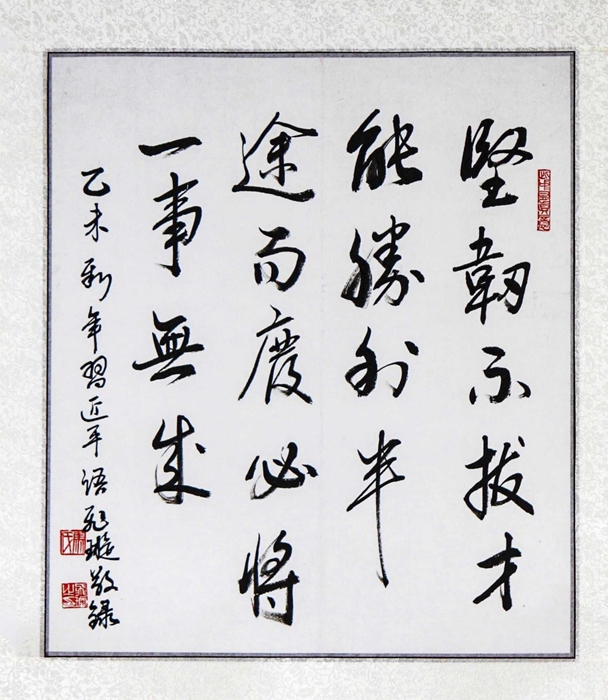 堅韌不拔才
能勝利半
途而廢必將
一事無成
乙未新年習近平語璇敬錄